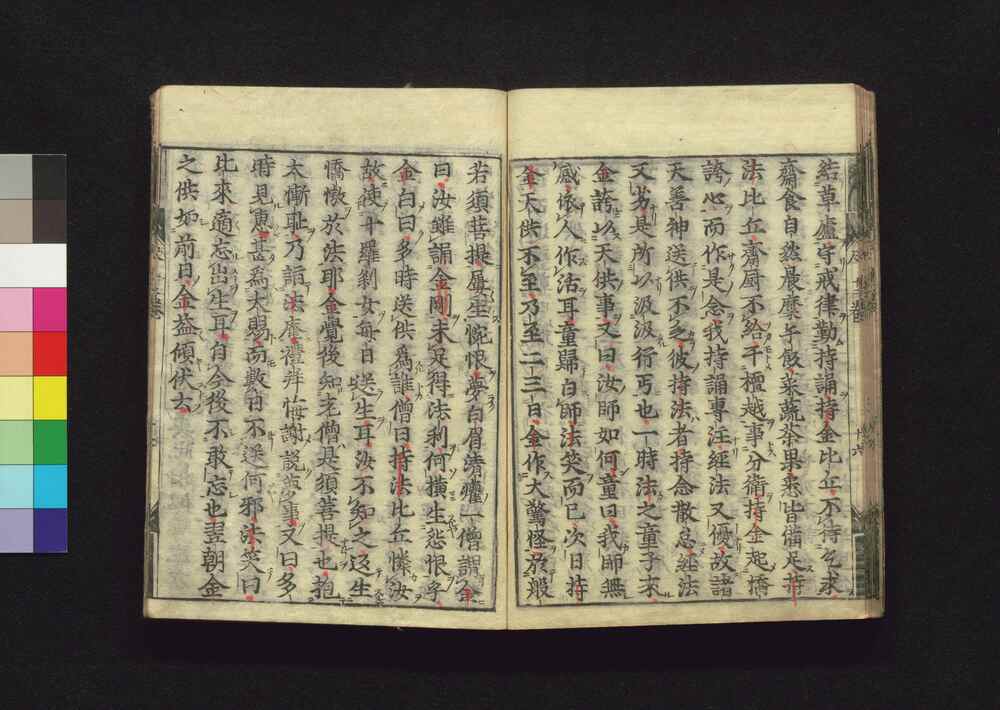 結草廬守戒律勤持誦持金比丘不待乞求
齋食自然晨麋午飯菜蔬茶果悉皆備足持
法比丘齋厨不給干檀越事分衛持金起憍
誇心而作是念我持誦專注經法又優故諸
天善神送供不乏彼持法者持念散忽經法
又劣是所以汲汲行丐也一時法之童子來
金誇以天供事又曰汝師如何童曰我師無
感依人作活耳童歸白師法笑而已次日持
金天供不至乃至二三日金作大驚怪於般
若須菩提屡生怨恨夢白眉清癯一僧謂金
曰汝雖誦金剛未足得法利何横生怨恨乎
金白曰多時送供爲誰僧曰持法比丘憐汝
故使十羅刹女毎日送生耳汝不知之返生
憍慠於法耶金覺後知老僧是須菩提也抱
大慚耻乃詣法庵禮拜悔謝説夢事又曰多
時見惠甚爲大賜而數日不送何邪法笑曰
比來適忘出生耳自今後不敢忘也翌朝金
之供如前日金益傾伏云